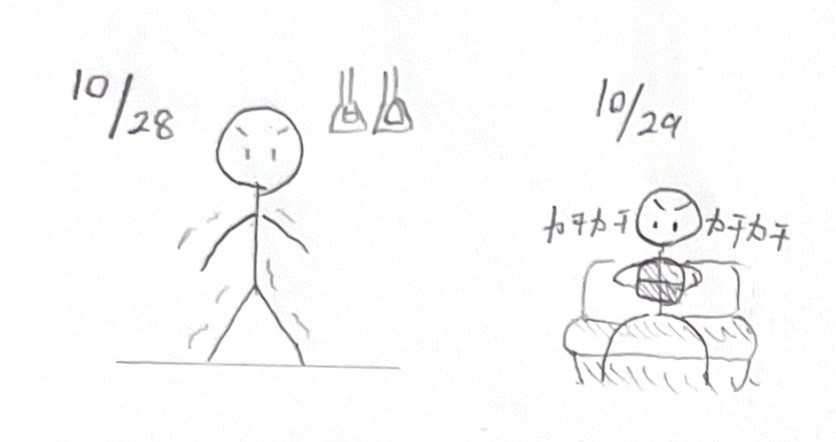 10/28
10/29
カチカチ
カチカチ